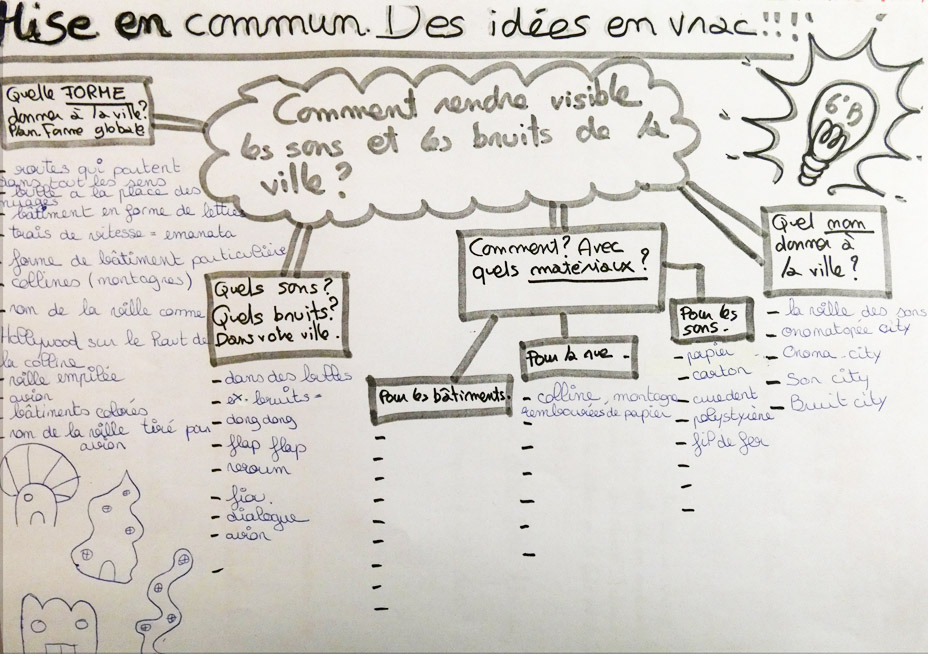 Mise en commun. Des idées en vrac!!!!
6°B
Comment rendre visible
les sons et les bruits de la
ville ?
Quelle FORME
donner à la ville?
Plan. Forme globale
- routes qui partent
dans tout les sens
- bulle à la place des
nuages
- bâtiment en forme de lettres
- trais de vitesse = emanata
- forme de bâtiment particulière
- collines (montagnes)
- nom de la ville comme
Hollywood sur le Haut de
la colline
- ville empilée
- avion
- bâtiments colorés
- nom de la ville tiré par
avion
Quels sons?
Quels bruits?
Dans votre ville.
- dans des bulles
- ex. bruits =
- dong dong
- flap flap
- vroum
- dialogue
- avion
-
Comment? Avec
quels matériaux?
Pour les bâtiments.
-
-
-
-
-
-
-
-
-
Pour la rue.
- colline, montagne
rembourrées de papier
-
-
-
-
-
-
Pour les
sons.
- papier
- carton
- curedent
- polystyrène
- fil de fer
-
-
-
Quel nom
donner à
la ville ?
- la ville des sons
- onomatopée city
- Onoma-city
- Son city
- Bruit city